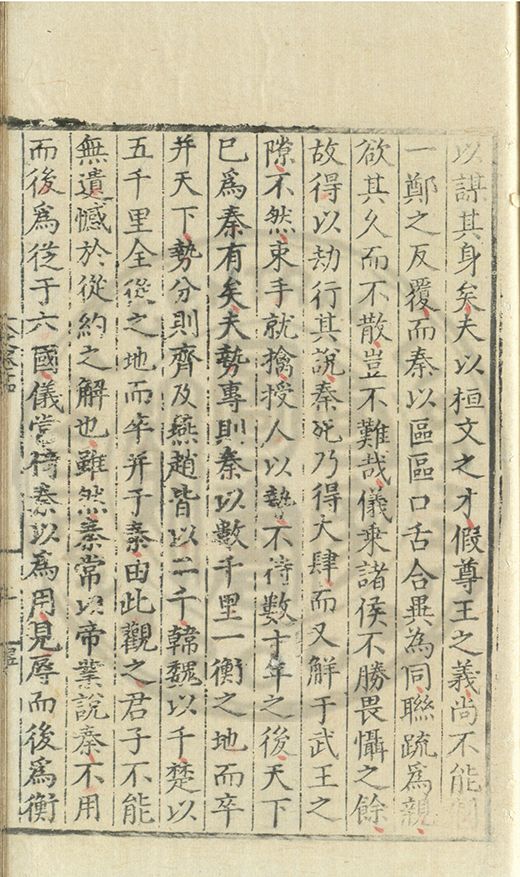 以謀其身矣夫以桓文之才假尊王之義尚不能
一鄭之反覆而秦以區區口舌合異為同聯疏爲親
欲其久而不散豈不難哉儀乗諸侯不勝畏懾之餘
故得以劫行其說秦死乃得大肆而又解于武王之
隙不然束手就擒授人以勢不待數十年之後天下
已爲秦有矣夫勢專則秦以數千里一衡之地而卒
并天下勢分則齊及燕趙皆以二千韓魏以千楚以
五千里全從之地而卒并于秦由此觀之君子不能
無遺憾於從約之解也雖然秦常以帝業說秦不用
而後爲從于六國儀嘗待秦以爲用見辱而後爲衡